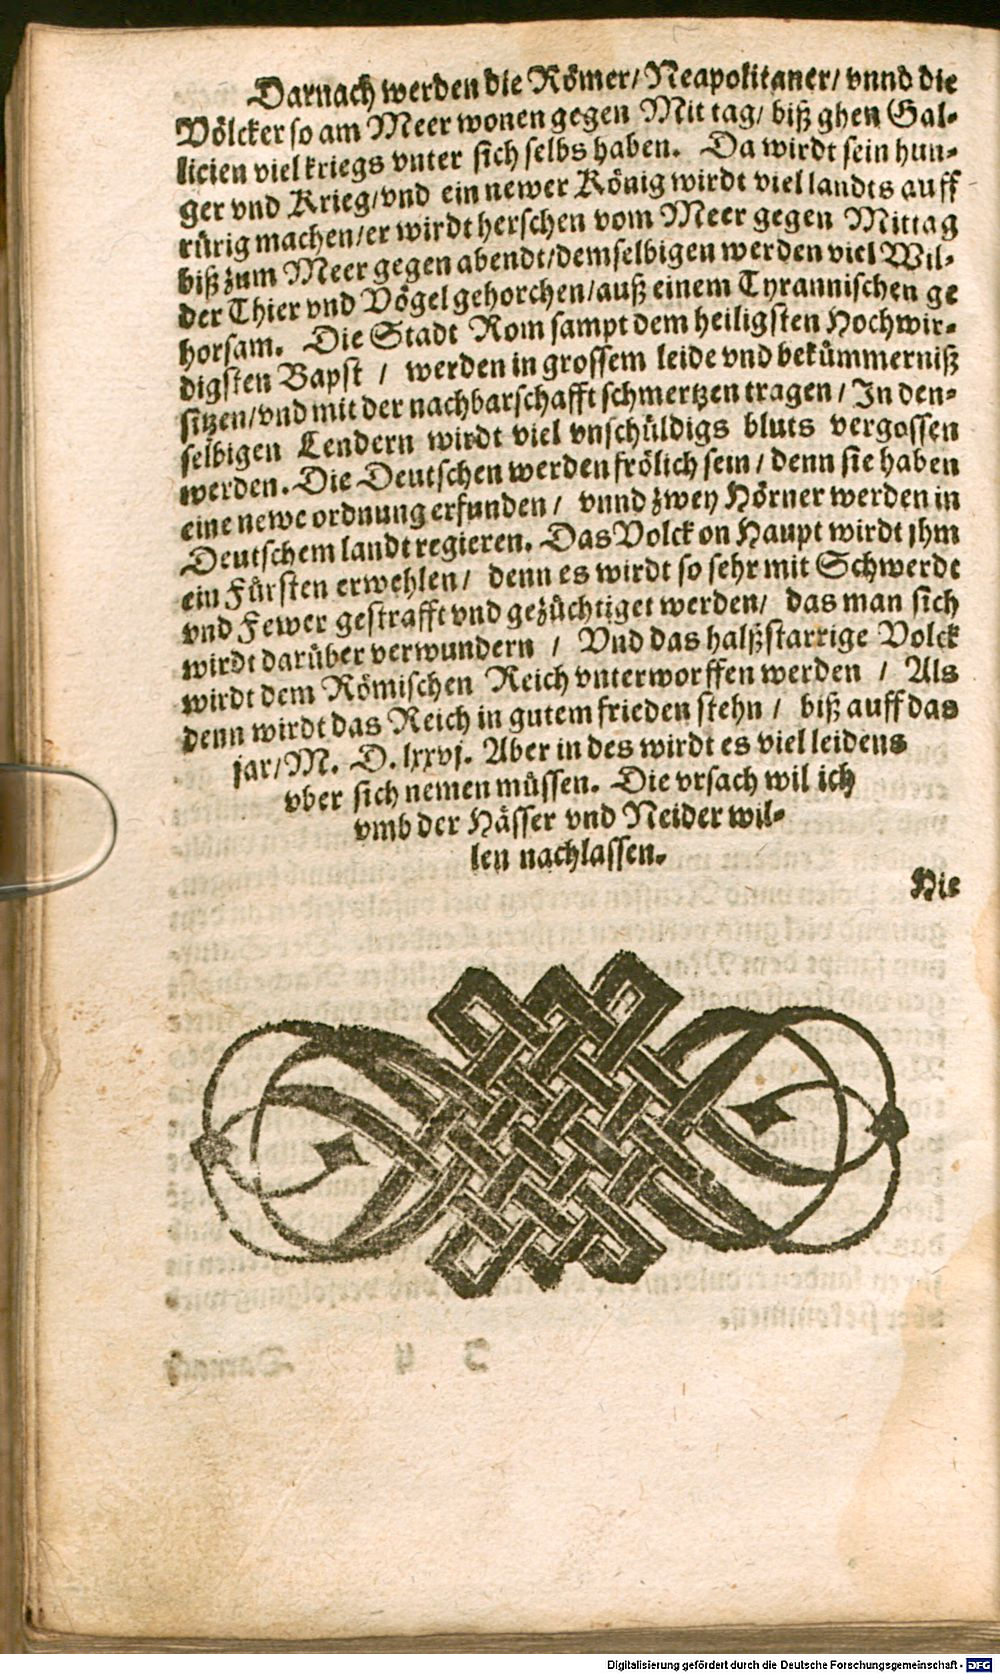 Darnach werden die Römer/ Neapolitaner/ vnnd die
Völcker so am Meer wonen gegen Mittag/ biß ghen Gal-
licien viel kriegs vnter sich selbs haben. Da wirdt sein hun-
ger vnd Krieg/vnd ein newer König wirdt viel landts auff
rürig machen/er wirdt herschen vom Meer gegen Mittag
biß zum Meer gegen abendt/demselbigen werden viel Wil-
der Thier vnd Vögel gehorchen/auß einem Tyrannischen ge
horsam. Die Stadt Rom sampt dem heiligsten Hochwir-
digsten Bapst / werden in grossem leide vnd bekümmerniß
sitzen/vnd mit der nachbarschafft schmertzen tragen / In den-
selbigen Lendern wirdt viel vnschüldigs bluts vergossen
werden. Die Deutschen werden frölich sein / denn sie haben
eine newe ordnung erfunden / vnnd zwey Hörner werden in
Deutschem landt regieren. Das Volck on Haupt wirdt jhm
ein Fürsten erwehlen / denn es wirdt so sehr mit Schwerdt
vnd Fewer gestrafft vnd gezüchtiget werden/ das man sich
wirdt darüber verwundern / Vnd das halßstarrige Volck
wirdt dem Römischen Reich vnterworffen werden / Als
denn wirdt das Reich in gutem frieden stehn / biß auff das
jar/M. D. lxxvj. Aber in des wirdt es viel leidens
vber sich nemen müssen. Die vrsach wil ich
vmb der Hässer vnd Neider wil-
len nachlassen.
Hie
Digitalisierung gefördert durch die Deutsche Forschungsgemeinschaft - DFG